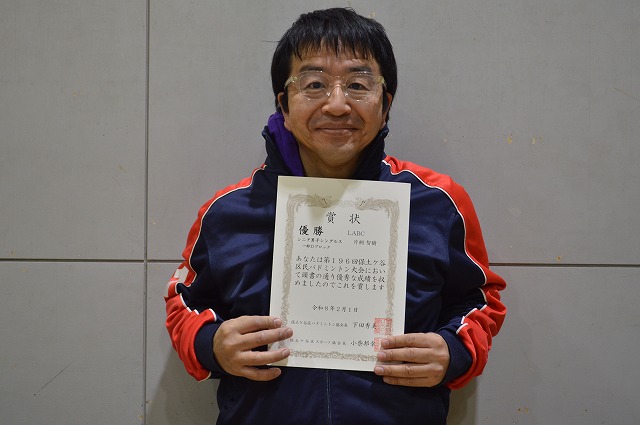 賞状
優勝 LABC
シニア男子シングルス 片桐 智樹
一部Dブロック
あなたは第196回保土ケ谷
区民バドミントン大会におい
て頭書の通り優秀な成績を収
めましたのでこれを賞します
令和8年2月1日
保土ケ谷区バドミントン協会長 下田秀美
保土ケ谷区スポーツ協会長 小巻郁